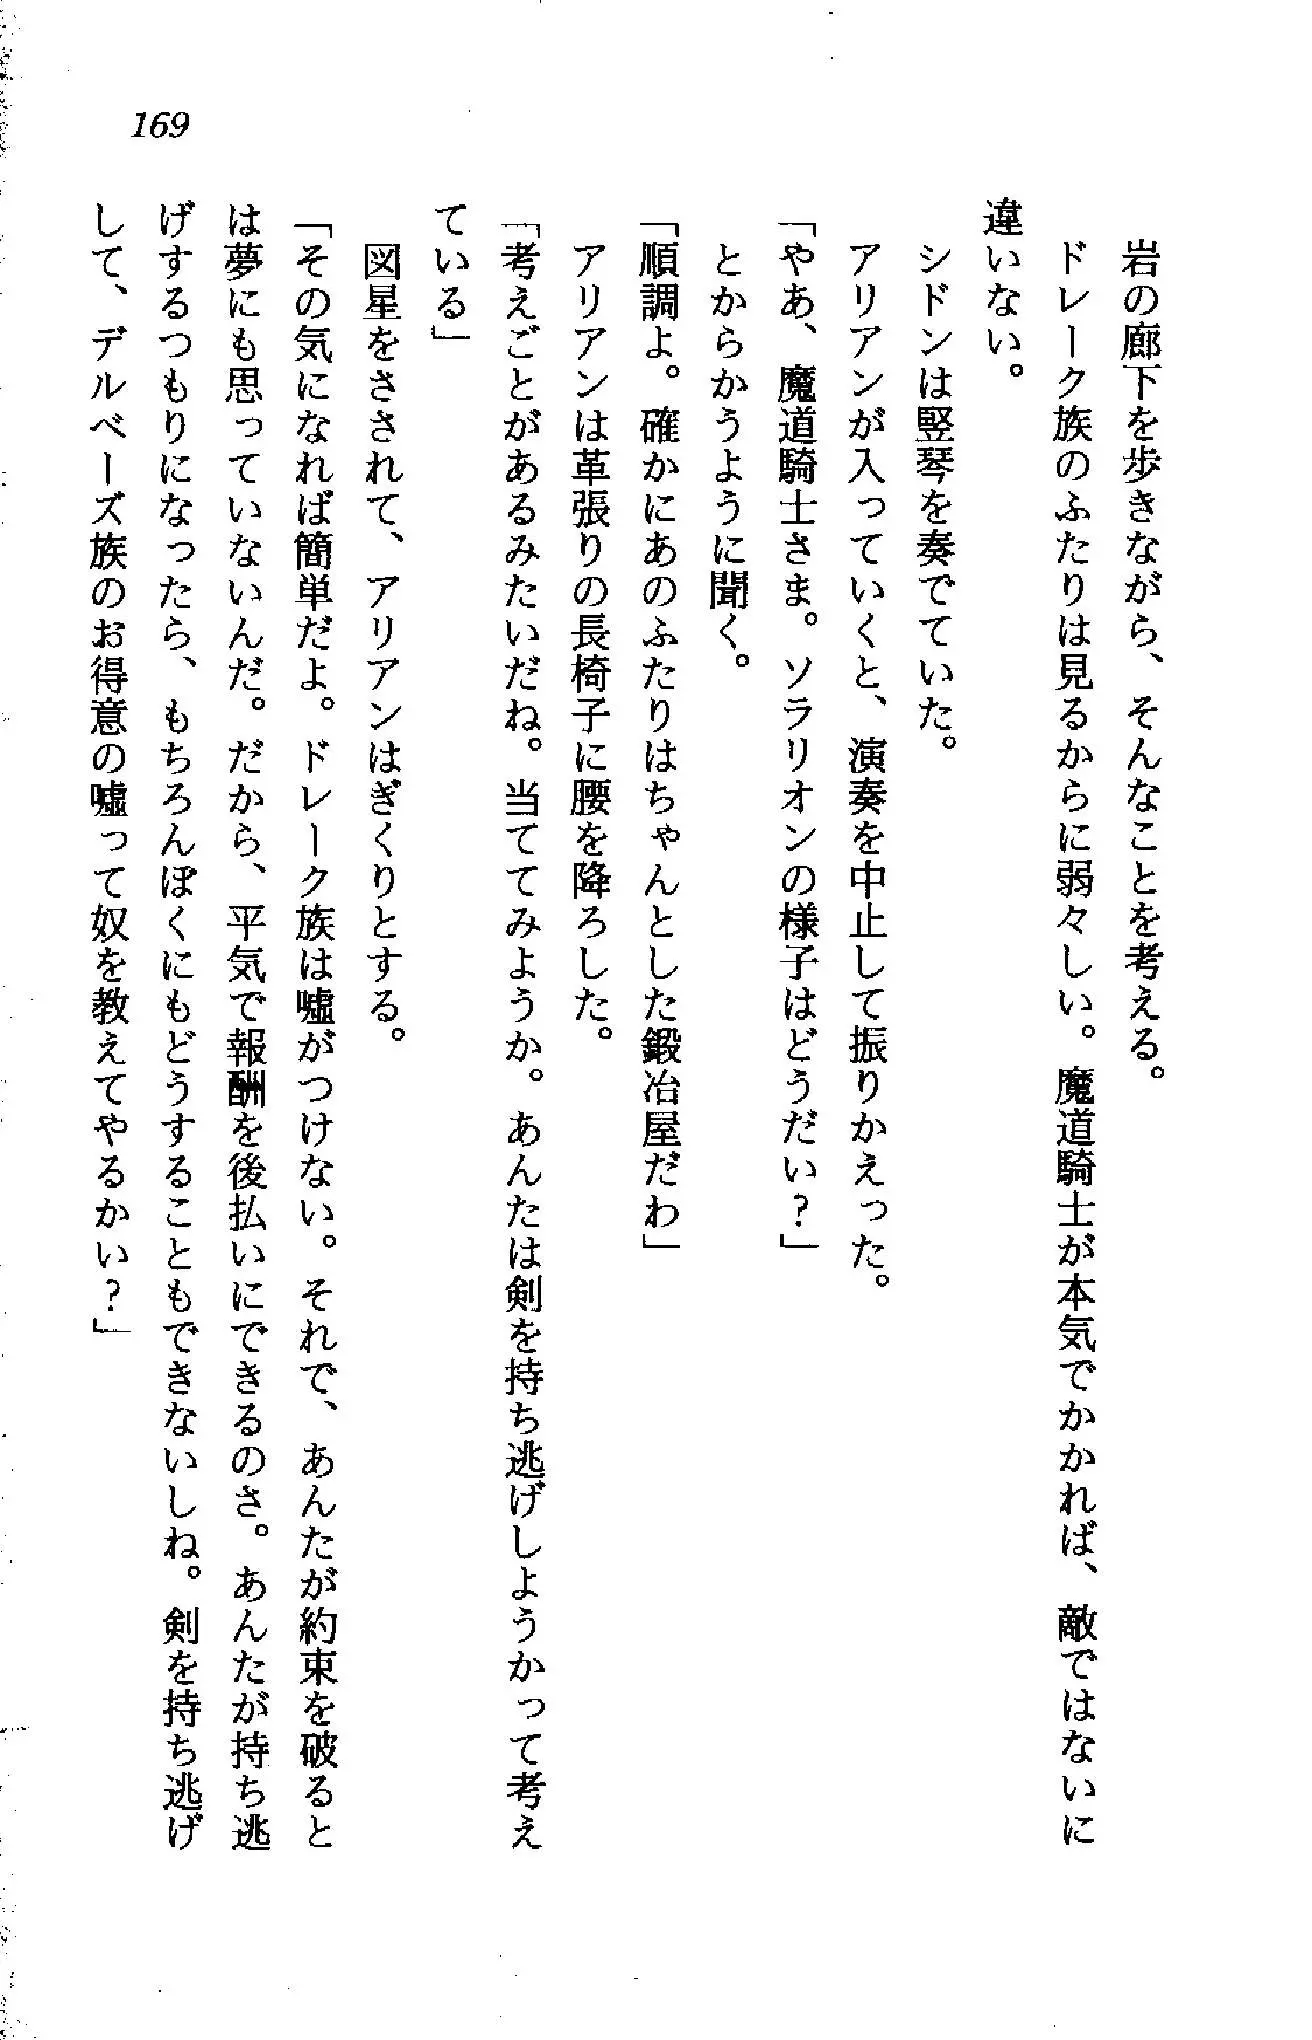 169
岩の廊下を歩きながら、そんなことを考える。
ドレーク族のふたりは見るからに弱々しい。魔道騎士が本気でかかれば、敵ではないに
違いない。
シドンは竪琴を奏でていた。
アリアンが入っていくと、演奏を中止して振りかえった。
「やあ、魔道騎士さま。ソラリオンの様子はどうだい？」
とからかうように聞く。
「順調よ。確かにあのふたりはちゃんとした鍛冶屋だわ」
アリアンは革張りの長椅子に腰を降ろした。
「考えごとがあるみたいだね。当ててみようか。あんたは剣を持ち逃げしようかって考え
ている」
図星をさされて、アリアンはぎくりとする。
「その気になれば簡単だよ。ドレーク族は嘘がつけない。それで、あんたが約束を破ると
は夢にも思っていないんだ。だから、平気で報酬を後払いにできるのさ。あんたが持ち逃
げするつもりになったら、もちろんぼくにもどうすることもできないしね。剣を持ち逃げ
して、デルベーズ族のお得意の嘘って奴を教えてやるかい？」